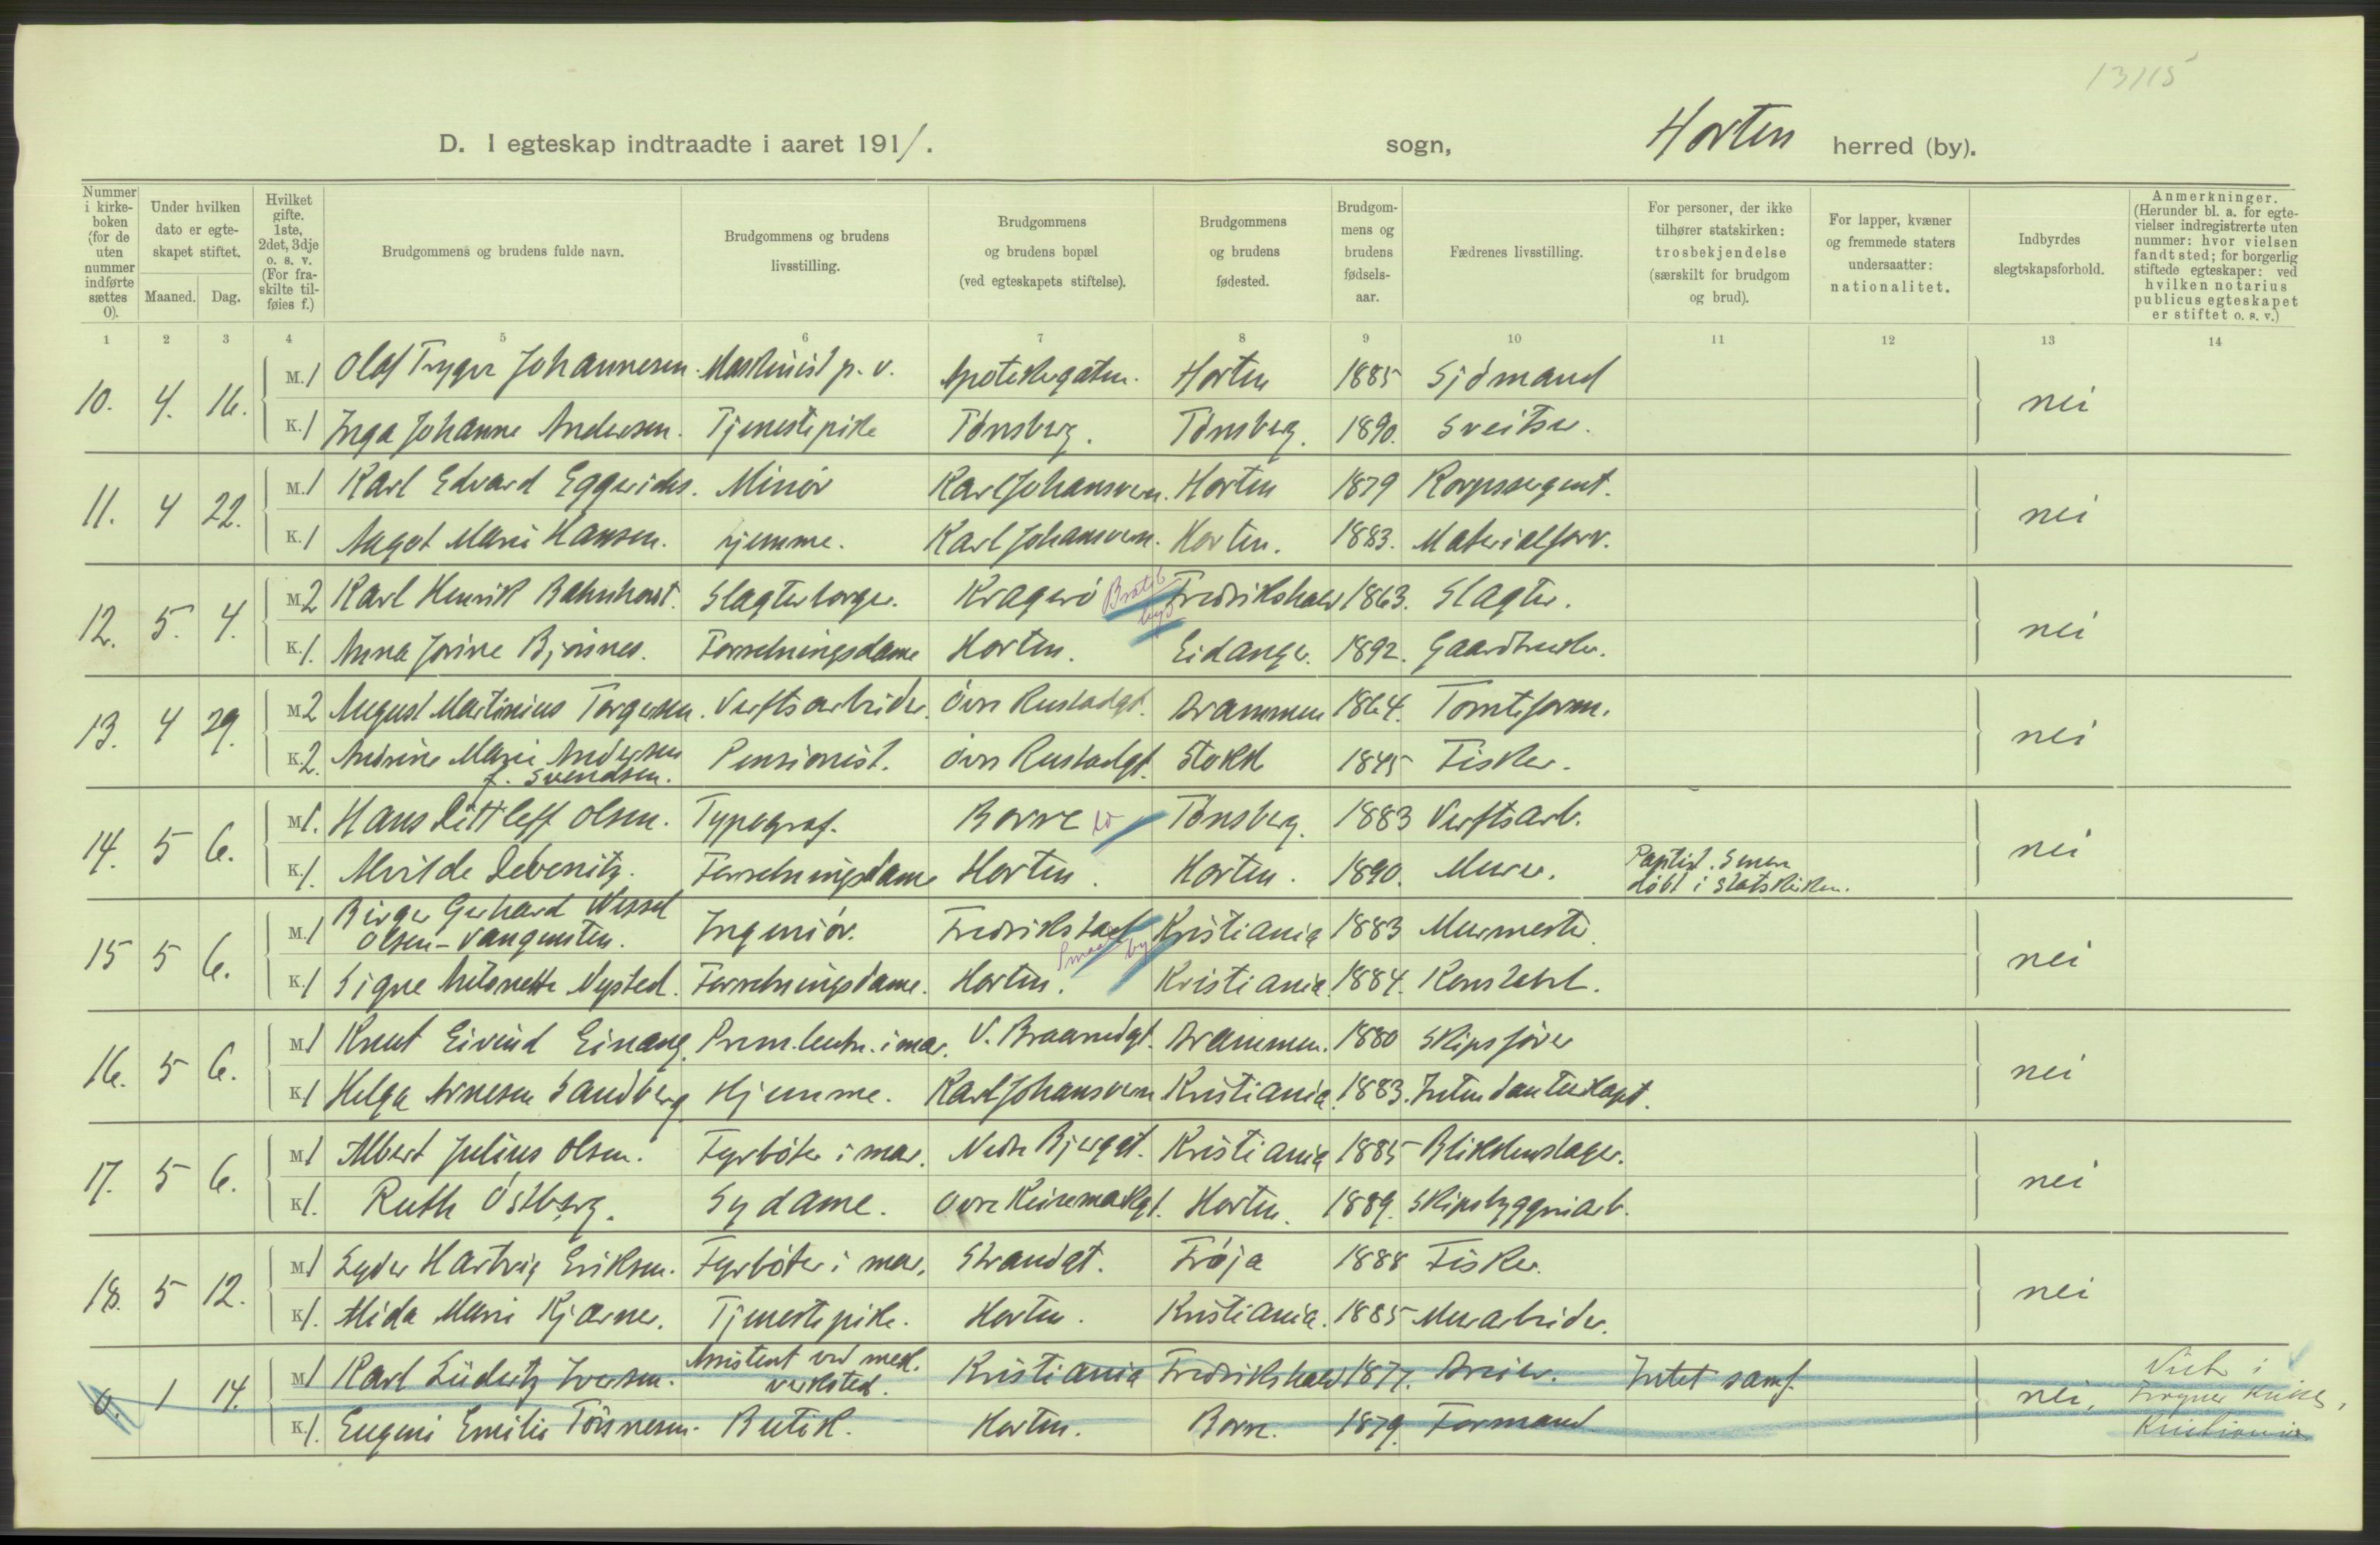 13/15
D. I egteskap indtraadte i aaret 1911. sogn, Horten herred (by).
Nummer i kirke-boken (for de uten nummer indførte sættes 0).
Under hvilken dato er egte-skapet stiftet.
Maaned. Dag.
Hvilket gifte. 1ste, 2det, 3dje o. s. v. (For fra-skilte til-føies f.)
Brudgommens og brudens fulde navn.
Brudgommens og brudens livsstilling.
Brudgommens og brudens bopæl (ved egteskapets stiftelse).
Brudgommens og brudens fødested.
Brudgom-mens og brudens fødsels-aar.
Fædrenes livsstilling.
For personer, der ikke tilhører statskirken: trosbekjendelse (særskilt for brudgom og brud).
For lapper, kvæner og fremmede staters undersaatter: nationalitet.
Indbyrdes slegtskapsforhold.
Anmerkninger. (Herunder bl. a. for egte-vielser indregistrerte uten nummer: hvor vielsen fandt sted; for borgerlig stiftede egteskaper: ved hvilken notarius publicus egteskapet er stiftet o. s. v.)
1 2 3 4 5 6 7 8 9 10 11 12 13 14
10. 4. 16. M. 1 Olaf Trygve Johannesen. Maskinist p. v. Apotekergaten. Horten 1885 Sjömand nei
K. 1 Inga Johanne Andersen. Tjenestepike Tönsberg. Tönsberg. 1890. Sveitser.
11. 4 22. M. 1 Karl Edvard Eggerichs. Minör Karljohansvern. Horten 1879 Korpssergent. nei
K. 1 Aagot Marie Hansen. hjemme. Karl Johansvern. Horten. 1883. Materialforv.
12. 5. 4. M. 2 Karl Henrik Bahnhorst. Slagterborger. Kragerö Bratsb. byd Fredrikshald 1863. Slagter. nei
K. 1. Anna Jorine Bjørsnes. Forretningsdame Horten. Eidanger. 1892. Gaardbruker.
13. 4 29. M. 2 August Martinius Torgersen. Verftsarbeider. Övre Rustadgt. Drammen 1864. Tomteform. nei
K. 2. Andrine Marie Andersen f. Svendsen. Pensionist. Övre Rustadgt. Stokke 1845 Fisker.
14. 5 6. M 1. Hans Dittleff Olsen. Typograf. Borre Tönsberg. 1883 Verftsarb. nei
K. 1. Alvilde Debenitz. Forretningsdame Horten. Horten. 1890. Murer. Baptist. Senere döbt i Statskirken.
15 5 6. M. 1 Birger Gerhard Wessel Olsen-Vangensten. Ingeniör. Fredrikstad Smaal. by Kristiania 1883 Murmester. nei
K. 1 Signe Antonette Nysted. Forretningsdame. Horten. Kristiania. 1884. Konstabel.
16. 5 6. M 1 Knut Eivind Einang. Prem.leutn. i mar. V. Braarudgt. Drammen. 1880 Skipsförer nei
K 1 Helga Arnesen Sandberg Hjemme. Karl Johansvern Kristiania. 1883. Intendanturkapt.
17. 5 6. M 1 Albert Julius Olsen. Fyrböter i mar. Nedre Bjerggt. Kristiania 1885 Blikkenslager. nei
K 1. Ruth Östberg. Sydame. Övre Keisemarkgt. Horten. 1889. Skipsbyggeriarb.
18. 5 12. M 1 Lyder Hartvig Eriksen. Fyrböter i mar. Strandgt. Fröja 1888 Fisker. nei
K 1. Alida Marie Kjærner. Tjenestepike. Horten. Kristiania. 1885 Murarbeider.
0. 1 14. M 1 Karl Lüdertz Iversen. Assistent ved mek. verksted. Kristiania Fredrikshald 1877. Dreier. Intet samf. nei. Viet i Frogner kirke, Kristiania
K. 1. Eugenie Emilie Tönnesen. Butik. Horten. Borre. 1879. Formand